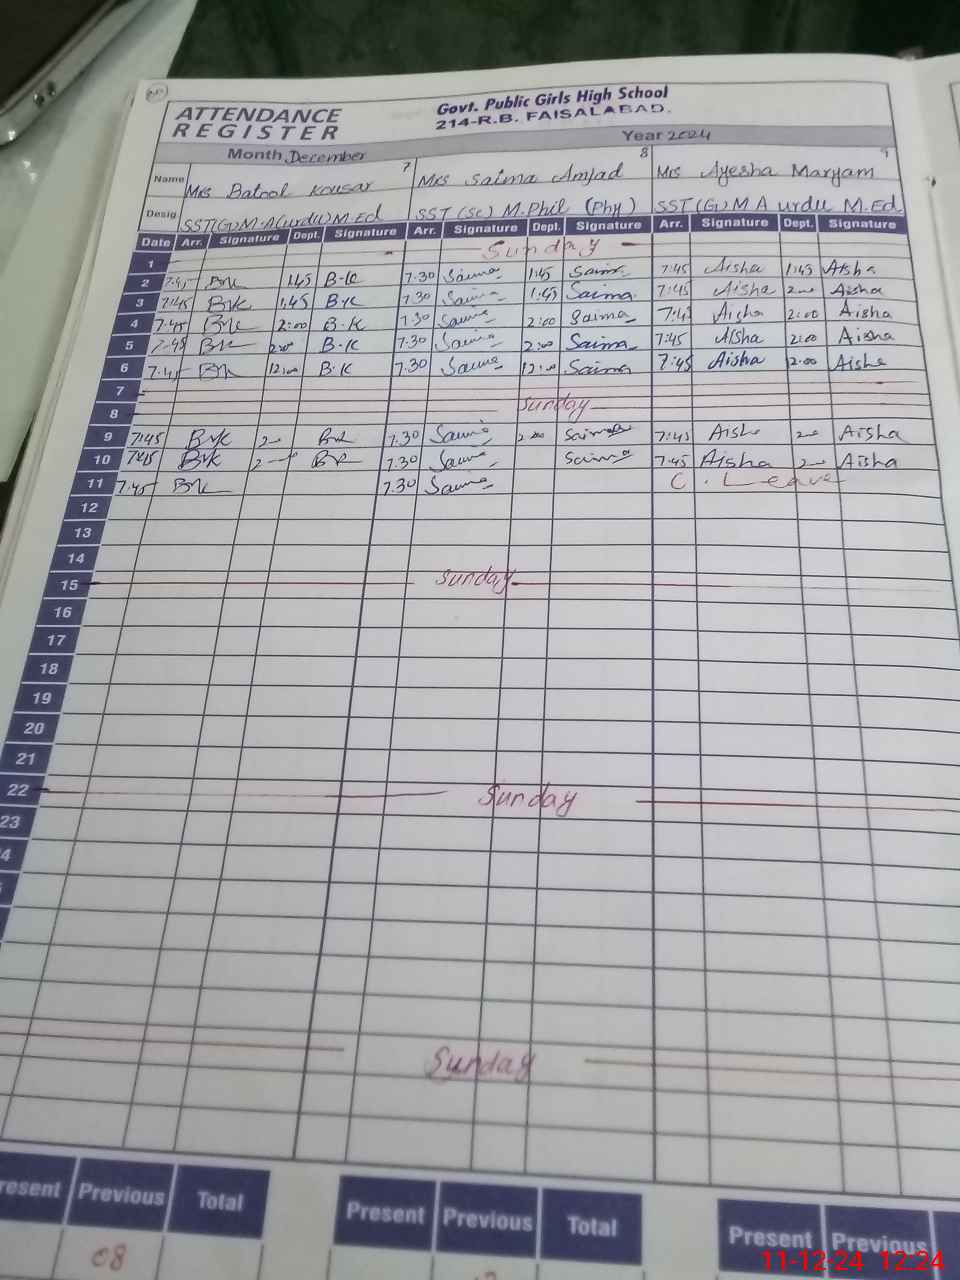 ATTENDANCE REGISTER
Govt. Public Girls High School
214-R.B. FAISALABAD.
Month December Year 2024
7 8 9
Name Mrs Batool Kousar Mrs Saima Amjad Mrs Ayesha Maryam
Desig. SST(G) M.A(urdu) M.Ed SST (Sc) M.Phil (Phy) SST(G) M A urdu M.Ed
Date Arr. Signature Dept. Signature Arr. Signature Dept. Signature Arr. Signature Dept. Signature
1 Sunday
2 7:45 1:45 B-K 7.30 Saima 1:45 Saima 7:45 Aisha 1:45 Aisha
3 7:45 1:45 7.30 Saima 1:45 Saima 7:45 Aisha 2:00 Aisha
4 7:45 2:00 B.K 7.30 Saima 2:00 Saima 7:45 Aisha 2:00 Aisha
5 7:45 2:00 B.K 7.30 Saima 2:00 Saima 7:45 Aisha 2:00 Aisha
6 7:45 12:00 B.K 7.30 Saima 12:00 Saima 7:45 Aisha 12:00 Aisha
7
8 Sunday
9 7:45 7.30 Saima 2:00 Saima 7:45 Aisha Aisha
10 7:45 7.30 Saima Saima 7:45 Aisha Aisha
11 7:45 7.30 Saima C. Leave
12
13
14
15 Sunday
16
17
18
19
20
21
22 Sunday
23
4
Sunday
resent Previous Total Present Previous Total Present Previous
08
11-12-24 12:24